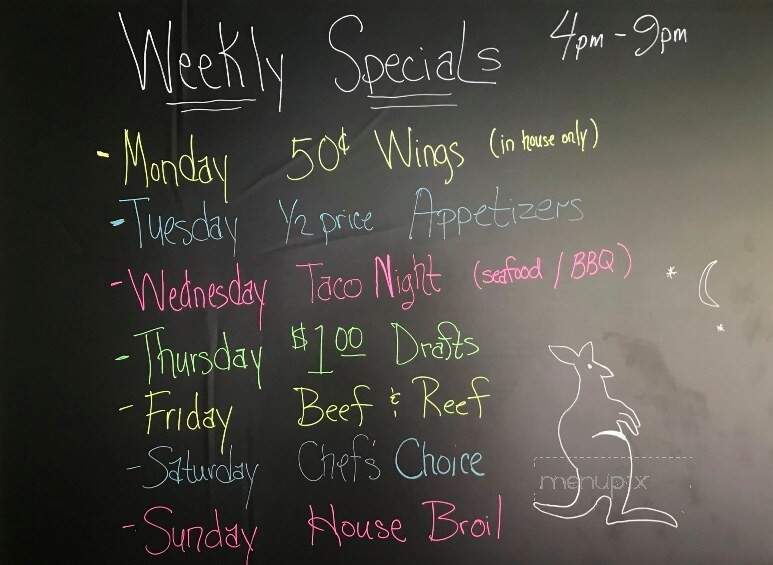 Weekly Specials 4pm - 9pm
- Monday 50¢ Wings (in house only)
- Tuesday 1/2 price Appetizers
- Wednesday Taco Night (seafood / BBQ)
- Thursday $1.00 Drafts
- Friday Beef & Reef
- Saturday Chef's Choice
menupix
- Sunday House Broil